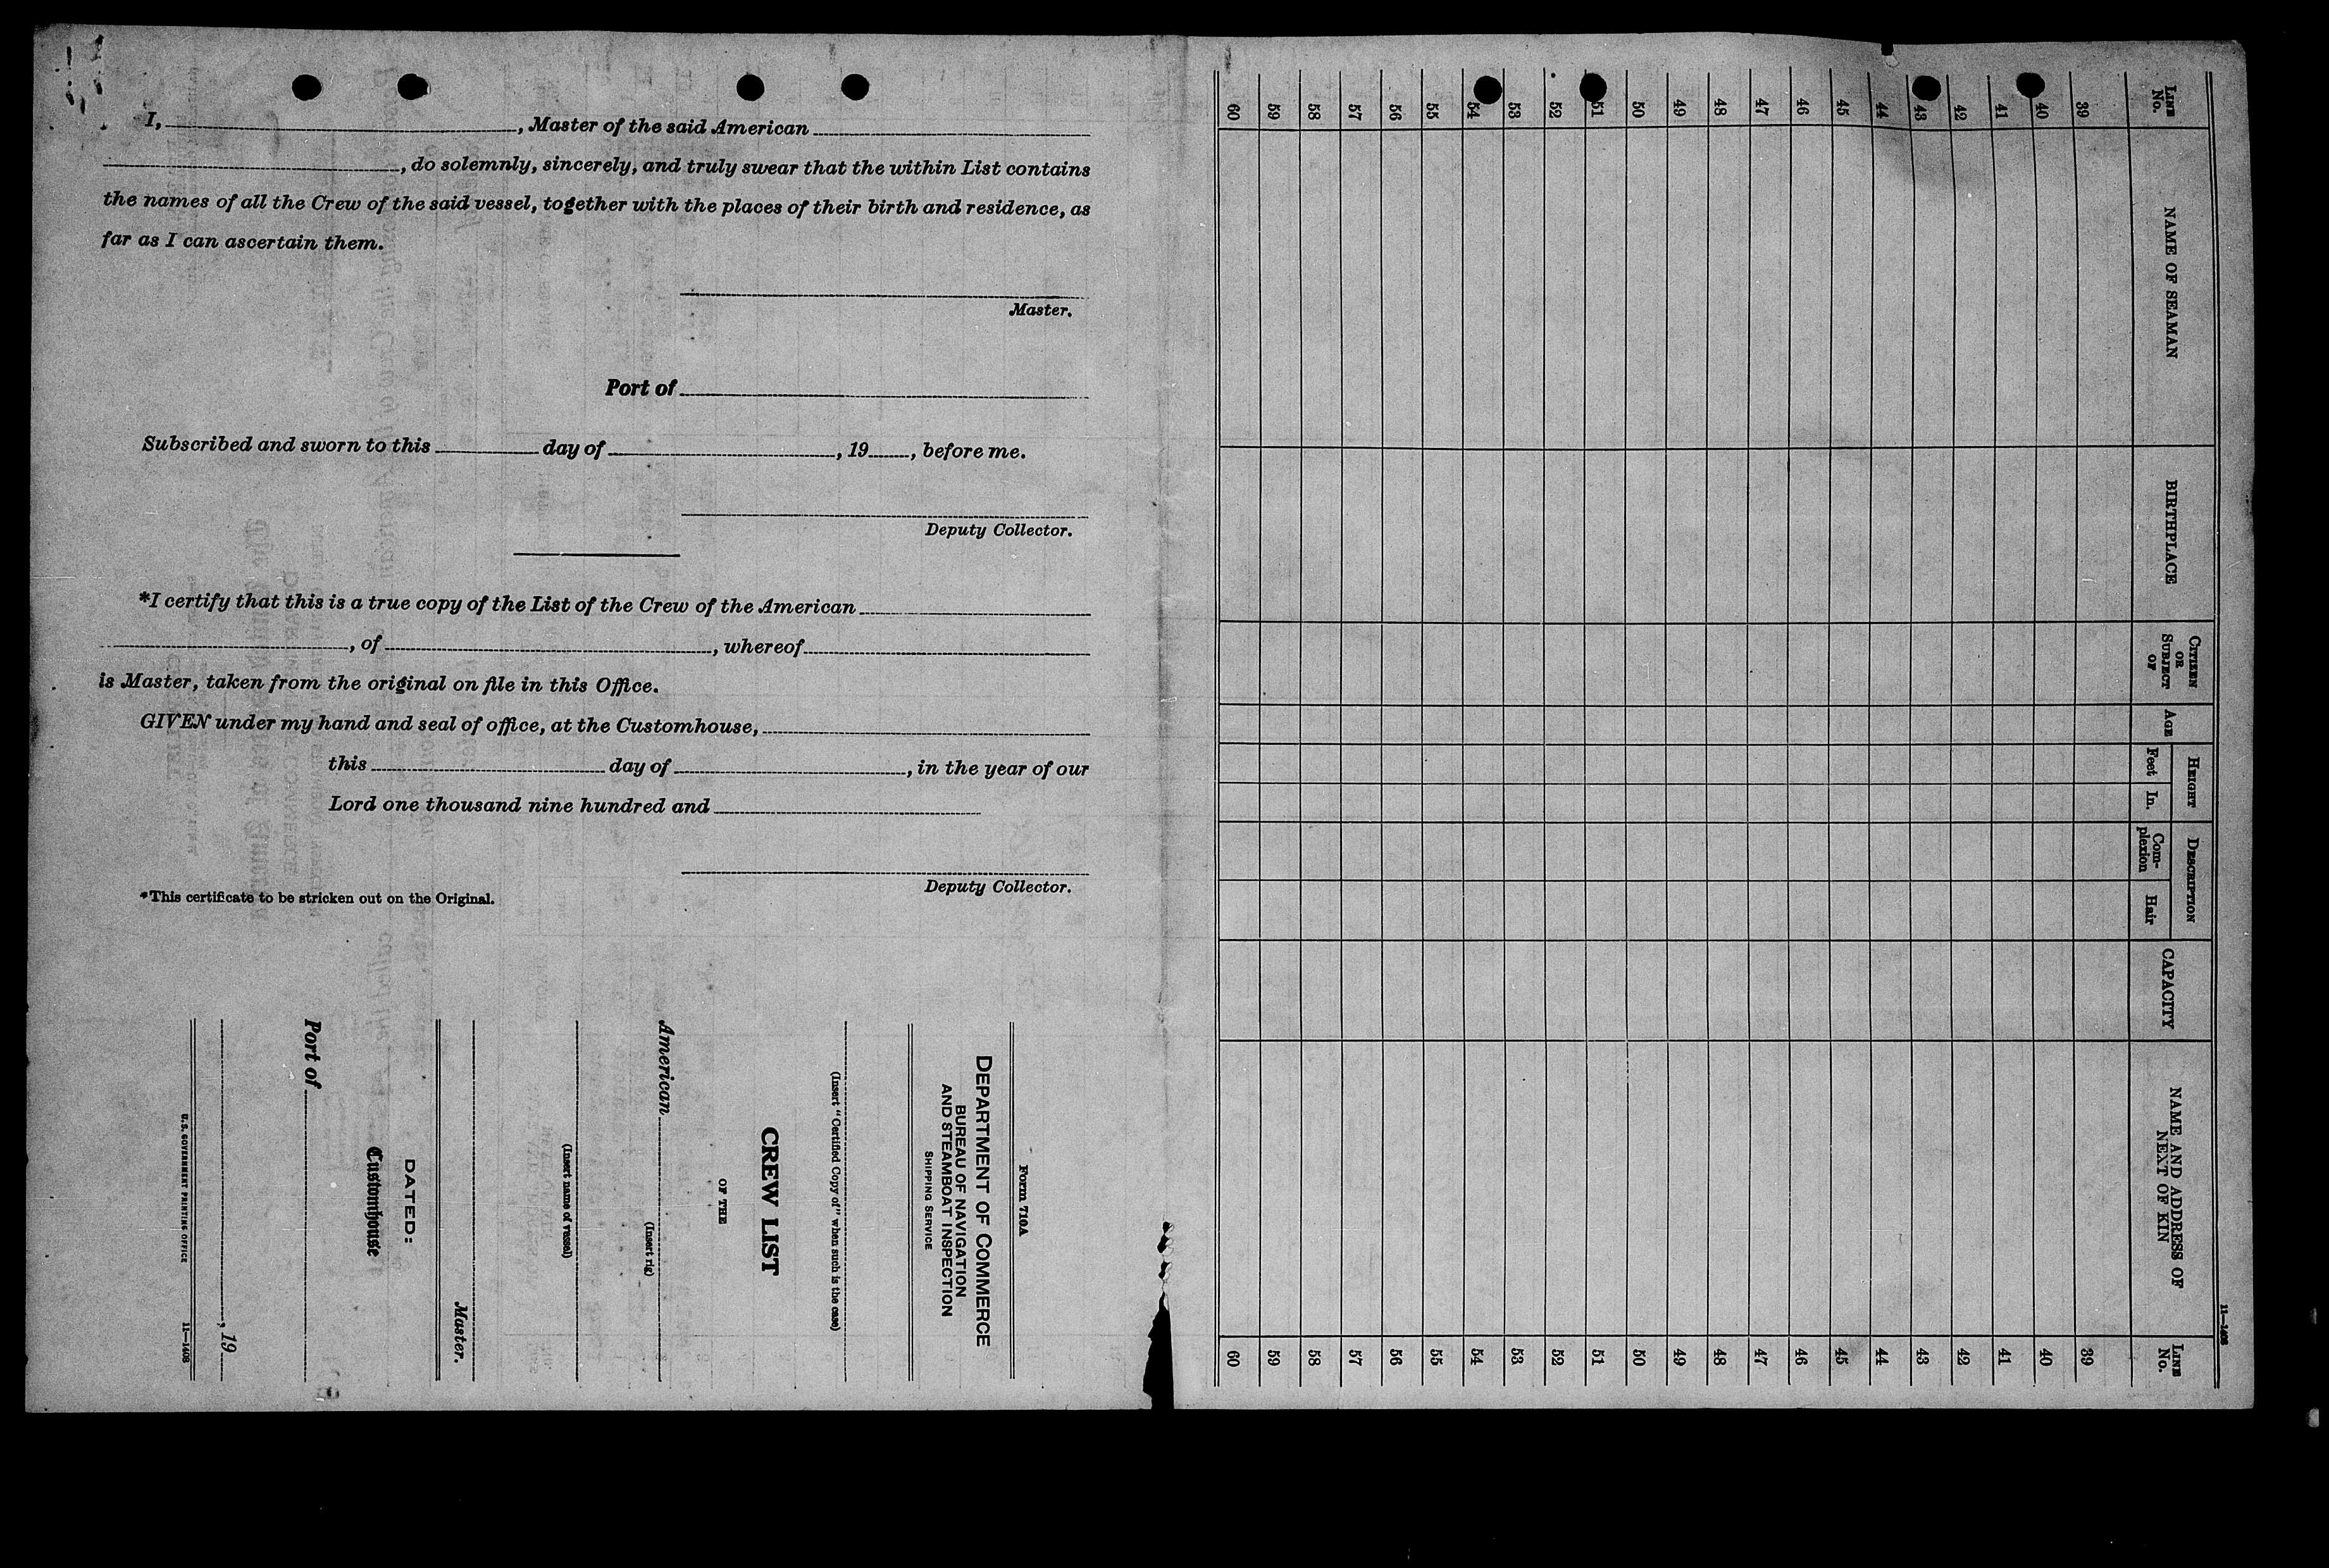 I, , Master of the said American
, do solemnly, sincerely, and truly swear that the within List contains
the names of all the Crew of the said vessel, together with the places of their birth and residence, as
far as I can ascertain them.
Master.
Port of
Subscribed and sworn to this day of , 19 , before me.
Deputy Collector.
*I certify that this is a true copy of the List of the Crew of the American
, of , whereof
is Master, taken from the original on file in this Office.
GIVEN under my hand and seal of office, at the Customhouse,
this day of , in the year of our
Lord one thousand nine hundred and
Deputy Collector.
*This certificate to be stricken out on the Original.
Form 710A
DEPARTMENT OF COMMERCE
BUREAU OF NAVIGATION
AND STEAMBOAT INSPECTION
SHIPPING SERVICE
(Insert "Certified Copy of" when such is the case)
CREW LIST
OF THE
American
(Insert rig)
(Insert name of vessel)
Master.
DATED:
Customhouse
Port of
, 19
U.S. GOVERNMENT PRINTING OFFICE 11—1408
11—1408
LINE No. NAME OF SEAMAN BIRTHPLACE CITIZEN OR SUBJECT OF AGE HEIGHT Feet In. DESCRIPTION Com-plexion Hair CAPACITY NAME AND ADDRESS OF NEXT OF KIN LINE No.
39 39
40 40
41 41
42 42
43 43
44 44
45 45
46 46
47 47
48 48
49 49
50 50
51 51
52 52
53 53
54 54
55 55
56 56
57 57
58 58
59 59
60 60